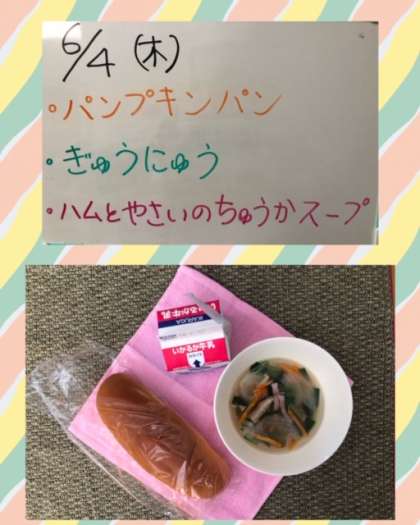 6/4 (木)
・パンプキンパン
・ぎゅうにゅう
・ハムとやさいのちゅうかスープ
いかるが牛乳
IKARUGA
いかるが牛乳